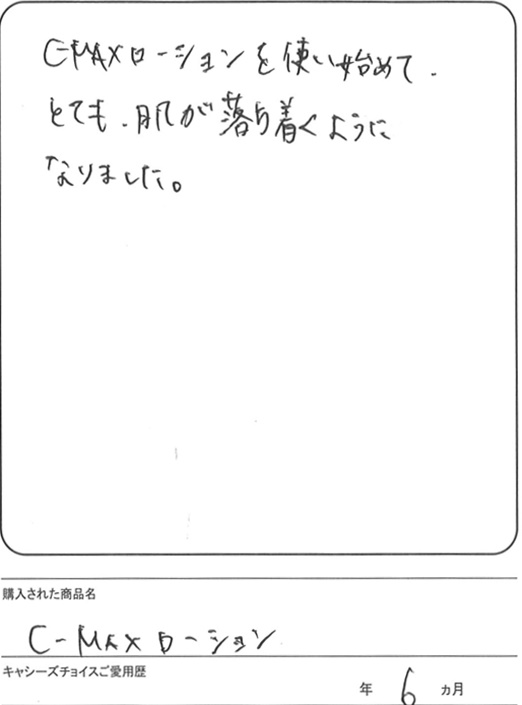 C-MAXローションを使い始めて、
とても、肌が落ち着くように
なりました。
購入された商品名
C-MAXローション
キャシーズチョイスご愛用歴
年 6 ヵ月